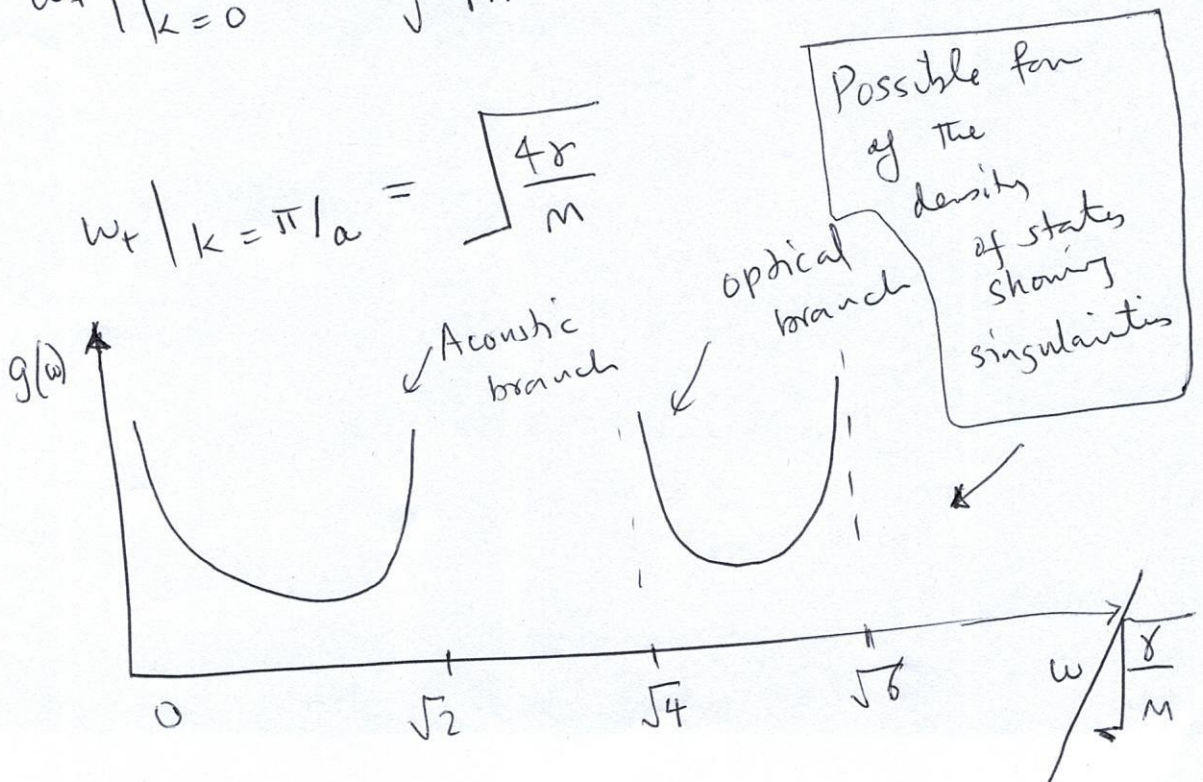 k = 0
ω+ | k = π/a = √(4γ/M)
Possible form
of the
density
of states
showing
singularities
optical
branch
Acoustic
branch
g(ω)
0 √2 √4 √6
ω / √(γ/M)